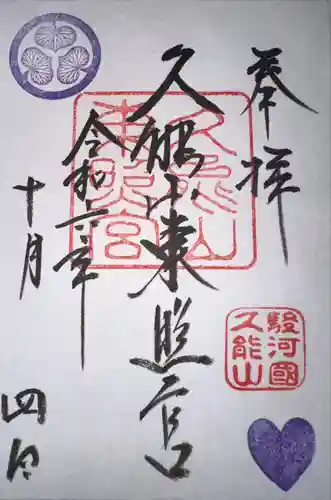 奉拝
久能山東照宮
令和六年
十月
四日
久能山
東照宮
駿河國
久能山